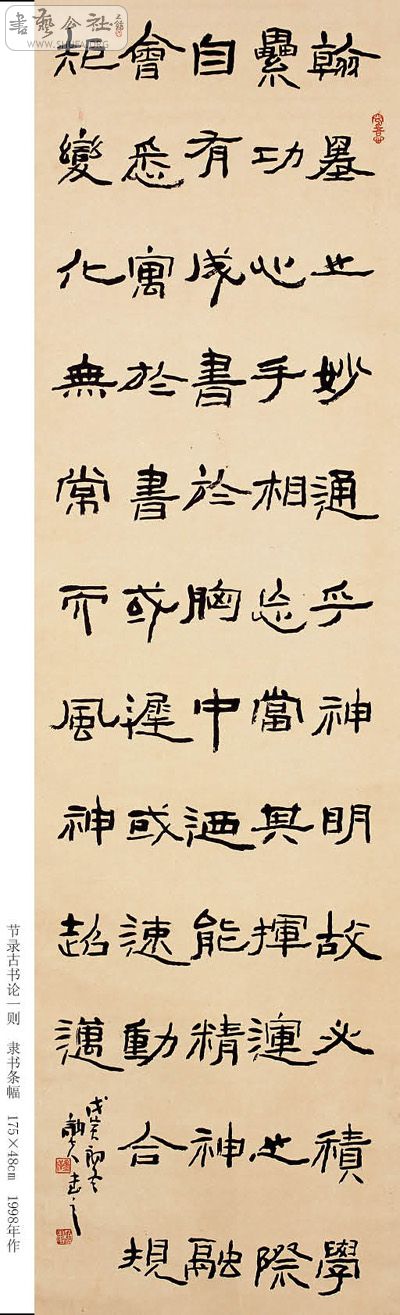 翰墨之妙通乎神明故必積學
纍功心手相忘當其揮運之際
自有成書於胸中迺能精神融
會悉寓於書或遲或速動合規
矩變化無常而風神超邁
戊寅初冬
节录古书论一则 隶书条幅 175×48cm 1998年作
書藝公社
www.SHUFA.ORG